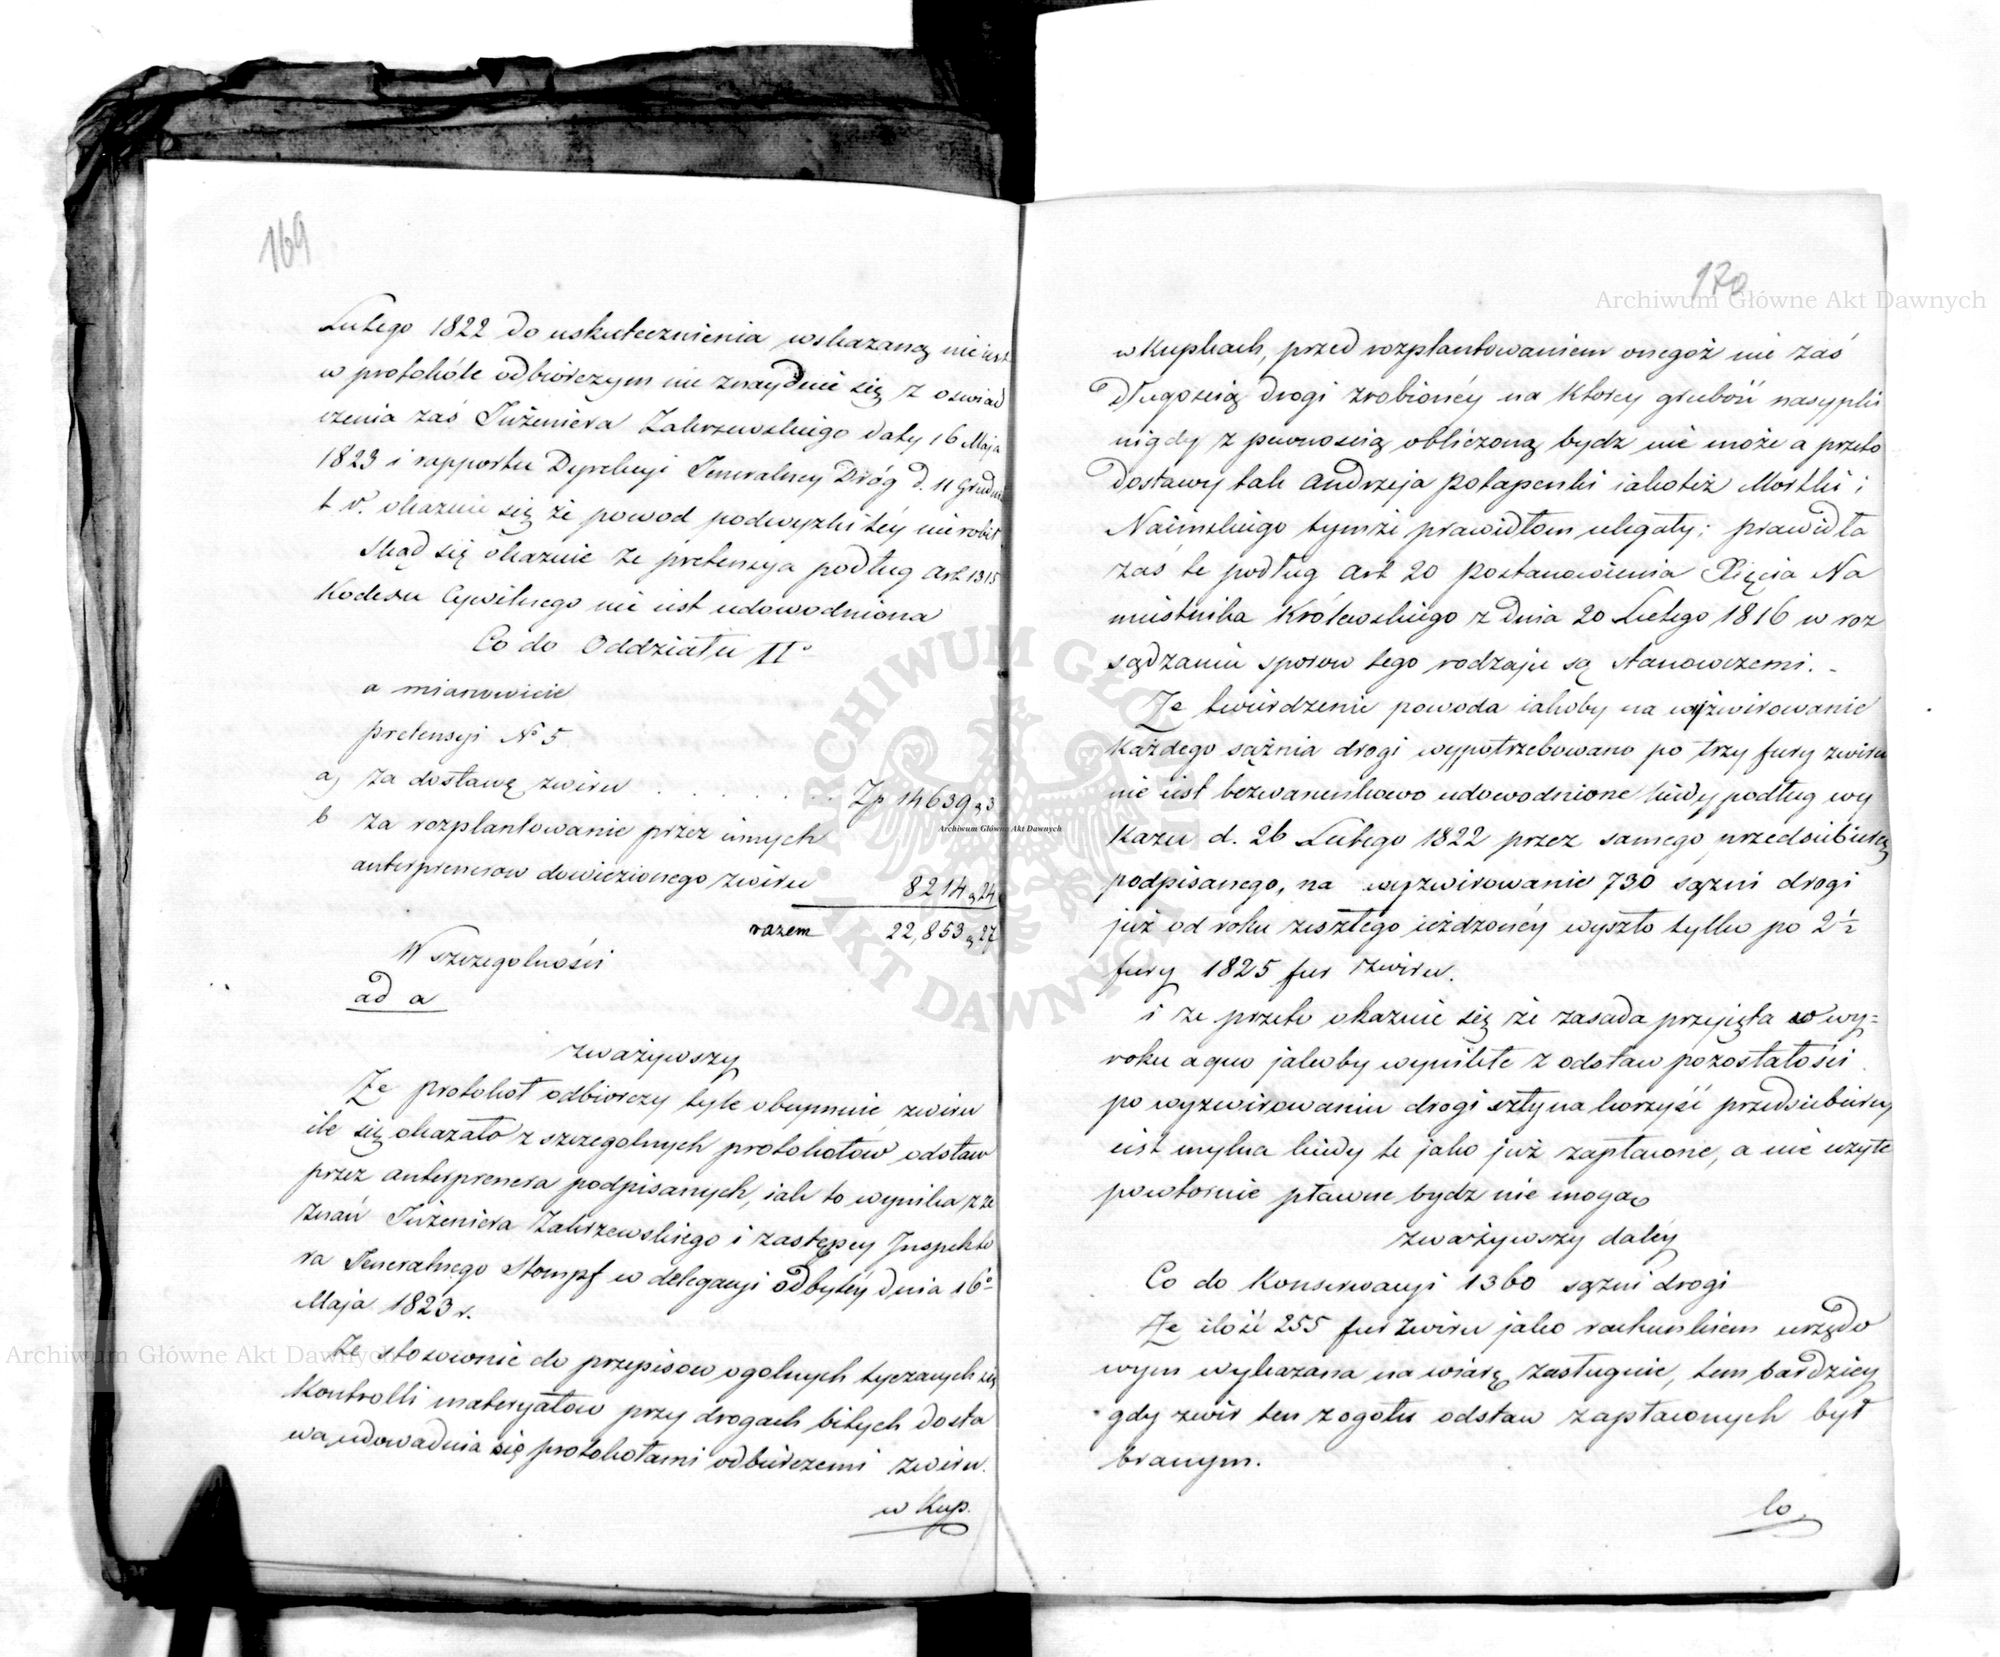 169
Lutego 1822 do uskutecznienia wskazaną nie iest
w protokóle odbiorczym nie znayduie się z oswiad
czenia zaś Inżeniera Zakrzewskiego daty 16 Maja
1823 i rapportu Dyrekcyi Jeneralney Dróg d. 11 Grudnia
t. r. okazuie się że powod podwyzki téy nie robił
Skąd się okazuie że pretensya podług Art 1315
Kodexu Cywilnego nie iest udowodniona
Co do Oddziału IIo
a mianowicie
pretensyi No 5
a, za dostawę zwiru . . . . . . Zp 14639 g 3
b za rozplantowanie przez innych
anterprenerow dowiezionego zwiru 8214 g 24
razem 22,853 g 27
W szczegolności
ad a
zważywszy
Że protokoł odbiorczy tyle obeymuie zwiru
ile się okazało z szczegolnych protokołow odstaw
przez anterprenera podpisanych, iak to wynika z ze
znań Inżeniera Zakrzewskiego i zastępcy Inspekto
ra Jeneralnego Stompf w delegacyi odbytéy dnia 16o
Maja 1823 r.
Że stosownie do przepisow ogolnych tyczących się
Kontrolli materyałow przy drogach bitych dosta
wa udowadnia się protokołami odbiorczemi zwiru.
w Kup.
170
w Kupkach, przed rozplantowaniem onegoż nie zaś
długoscią drogi zrobionéy na ktorey grubość nasypki
nigdy z pewnoscią obliczoną bydz nie może a przeto
dostawy tak Andrzeja Potapenki iakoteż Mostki i
Naimskiego tymże prawidłom ulegały; prawidła
zaś te podług Art 20 Postanowienia Xięcia Na
miestnika Królewskiego z dnia 20 Lutego 1816 w roz
sądzaniu sporow tego rodzaju są stanowczemi. -
Że twierdzenie powoda iakoby na wyżwirowanie
Każdego sążnia drogi wypotrzebowano po trzy fury zwiru
nie iest bezwarunkowo udowodnione kiedy podług wy
Kazu d. 26 Lutego 1822 przez samego przedsiebiercę
podpisanego, na wyzwirowanie 730 sązni drogi
już od roku zeszłego ieżdzonéy wyszło tylko po 2 ½
fury 1825 fur zwiru.
i że przeto okazuie się że zasada przyjęta w wy=
roku a quo jakoby wynikłe z odstaw pozostałości
po wyzwirowaniu drogi szły na korzyść przedsiebiercy
iest mylna kiedy te jako już zapłacone, a nie użyte
powtornie płacone bydz nie mogą
zważywszy daléy
Co do Konserwacyi 1360 sązni drogi
Że ilość 255 fur zwiru jako rachunkiem urzędo
wym wykazana na wiarę zasługuie, tem bardziey
gdy zwir ten z ogołu odstaw zapłaconych był
branym.
Co.
Archiwum Główne Akt Dawnych
Archiwum Główne Akt Dawnych
Archiwum Główne Akt Dawnych
ARCHIWUM GŁÓWNE AKT DAWNYCH